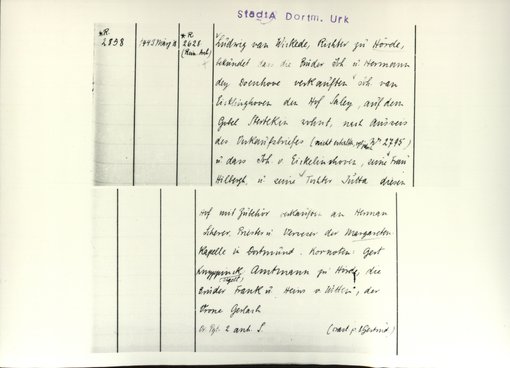 StadtA Dortm. Urk
*R 2838
1443 März
*R 2628
Ludwig van Wickede, Richter zu Hörde,
bekundet dass die Brüder Joh. u. Hermann
dey Doenhove verkauften Joh. van
Eicklinghoven den Hof Saley, auf dem
Gobel wohnt, nach Ausweis
des Verkaufsbriefes (nicht erhalten, Nr 2795)
u. dass Joh. v. Eickelinghoven, seine Frau
Hilbergh, u. seine Tochter Jutta diesen
Hof mit Zubehör verkaufen an Herman
Priester u. Verweser der Margareten-
Kapelle in Dortmund. Kornoten: Gert
Knyppinck Amtmann zu Hörde, die
Brüder Frank u. Heinr. v. Witten, der
Vrone Gerlach
Or. Pgt. 2 anh. S.